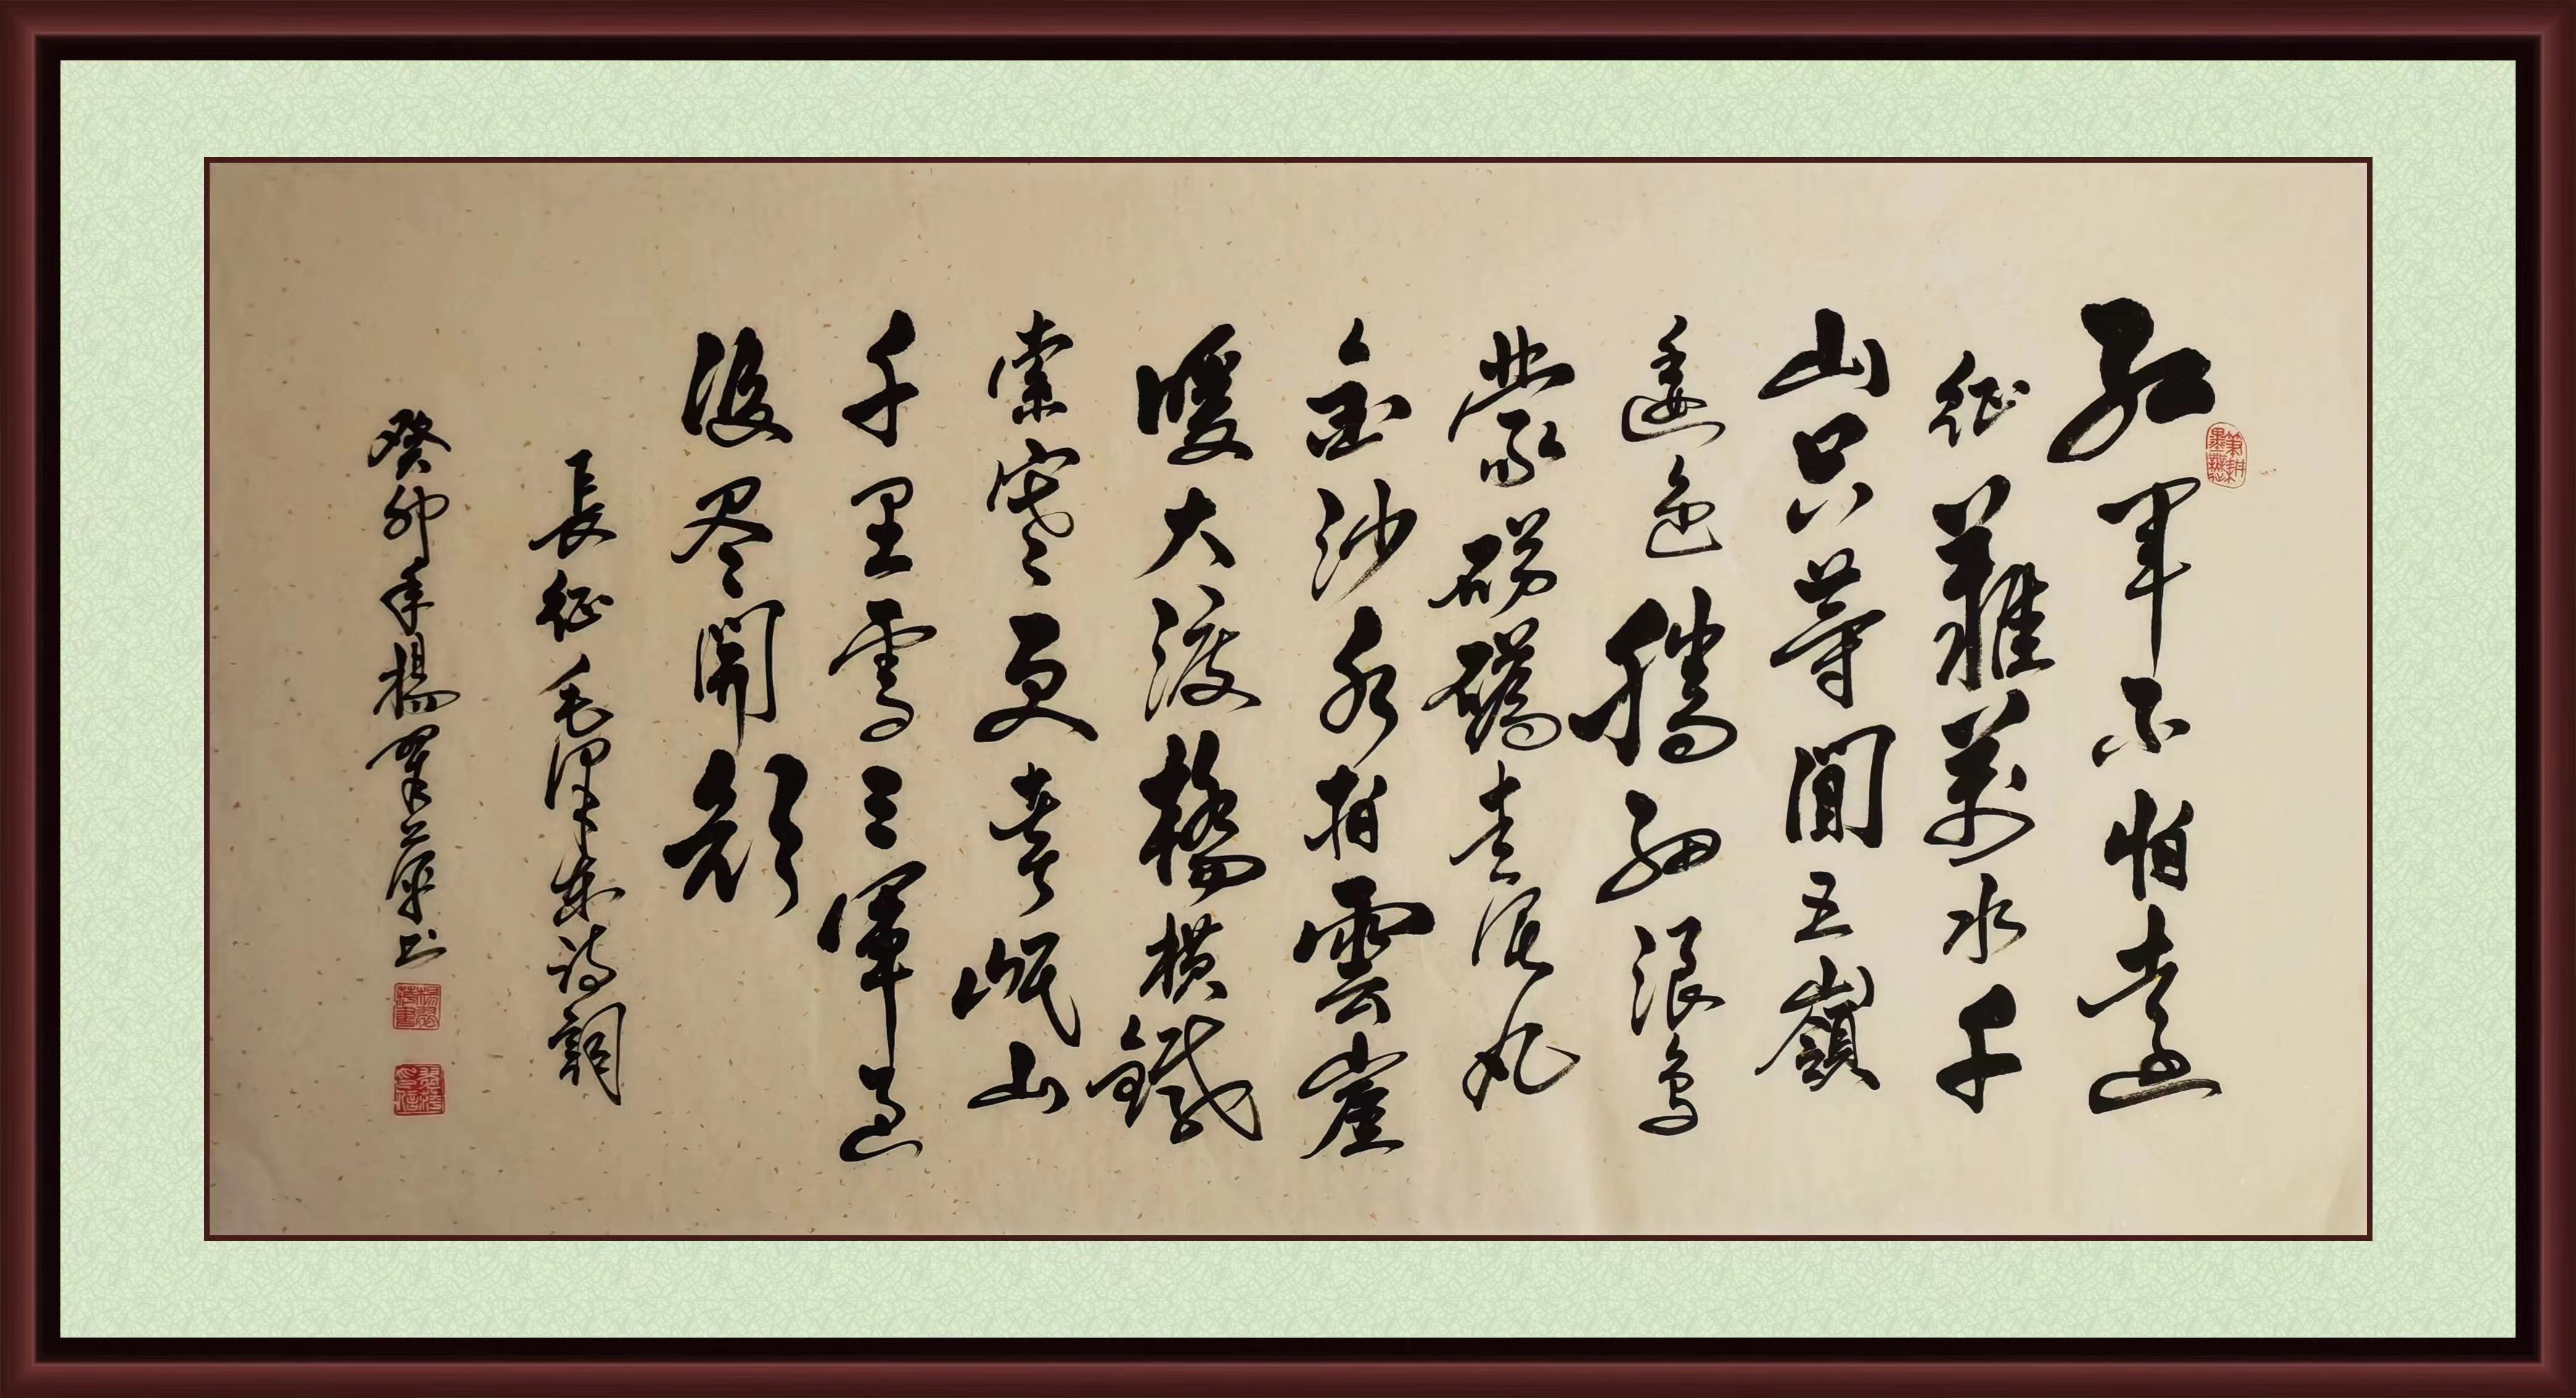 红军不怕遠
征難萬水千
山只等間五嶺
逶迤騰細浪烏
蒙磅礴走泥丸
金沙水拍雲崖
暖大渡橋横鐵
索寒更喜岷山
千里雪三軍過
後尽開顏
長征毛澤東詩詞
癸卯年楊翠萍书